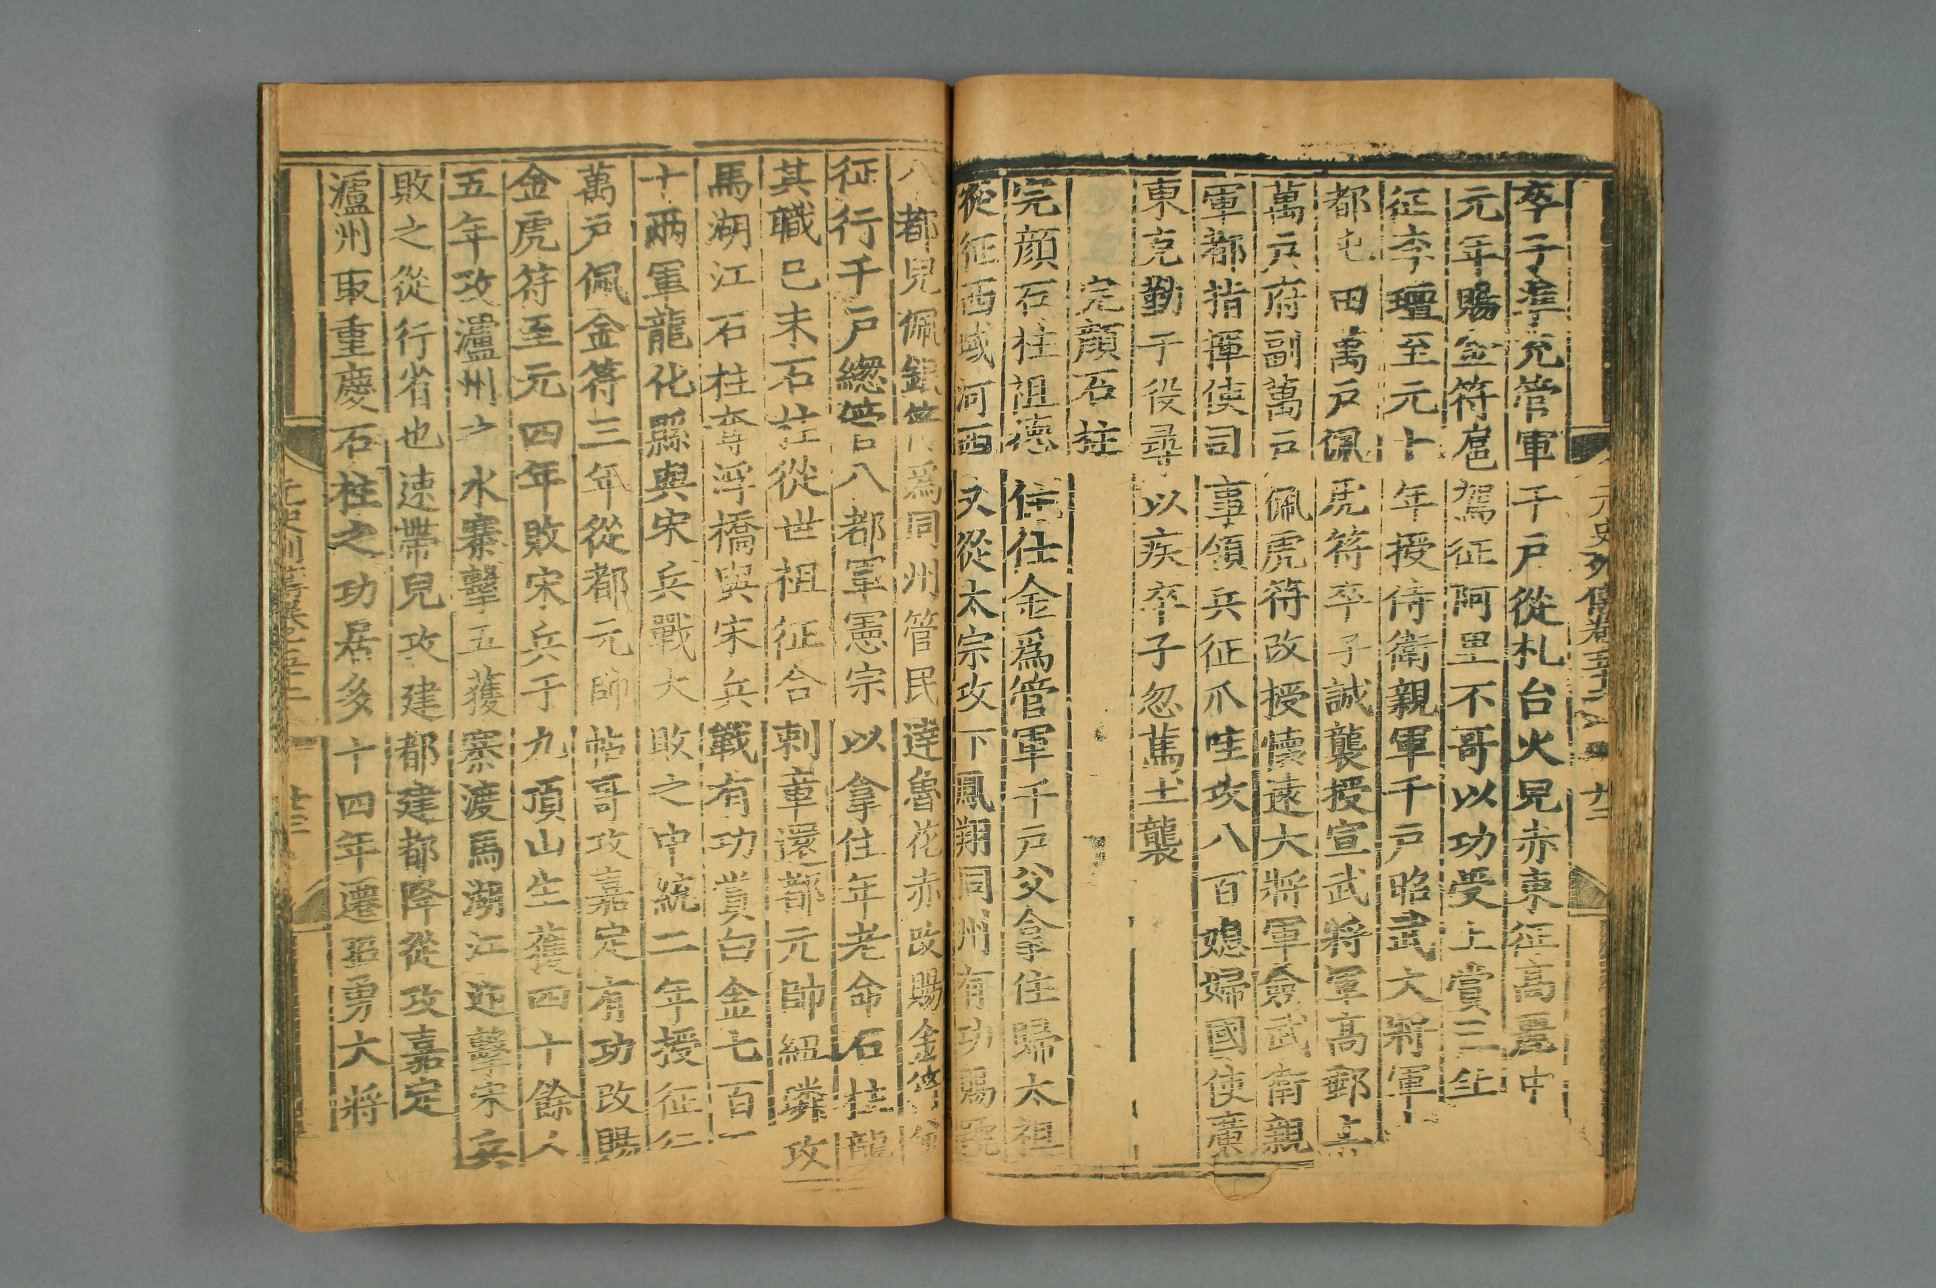 元史列傳卷五十二 廿二
卒子澤充管軍千戸從札台火兒赤東征高麗中
元年賜金符扈駕征阿里不哥以功受上賞三年
征李璮至元十年授侍衛親軍千戸昭武大將軍
都屯田萬戸佩虎符卒子誠襲授宣武將軍高郵上
萬戸府副萬戸佩虎符改授懷遠大將軍僉武衛親
軍都指揮使司事領兵征爪哇攻八百媳婦國使廣
東克勤于役尋以疾卒子忽篤土襲
完顔石柱
完顔石柱祖德住仕金爲管軍千戸父拿住歸太祖
從征西域河西又從太宗攻下鳳翔同州有功爲號
八都兒佩銀符爲同州管民達魯花赤改賜金符領
征行千戸總管八都軍憲宗以拿住年老命石柱襲
其職己未石柱從世祖征合剌章還都元帥紐璘攻
馬湖江石柱奪浮橋與宋兵戰有功賞白金七百
十兩軍龍化縣與宋兵戰大敗之中統二年授征行
萬戸佩金符三年從都元帥帖哥攻嘉定有功改賜
金虎符至元四年敗宋兵于九頂山生獲四十餘人
五年攻瀘州之水寨擊五獲寨渡馬湖江迎擊宋兵
敗之從行省也速帶兒攻建都建都降從攻嘉定
瀘州取重慶石柱之功居多十四年遷昭勇大將
元史列傳卷之五十二 廿三